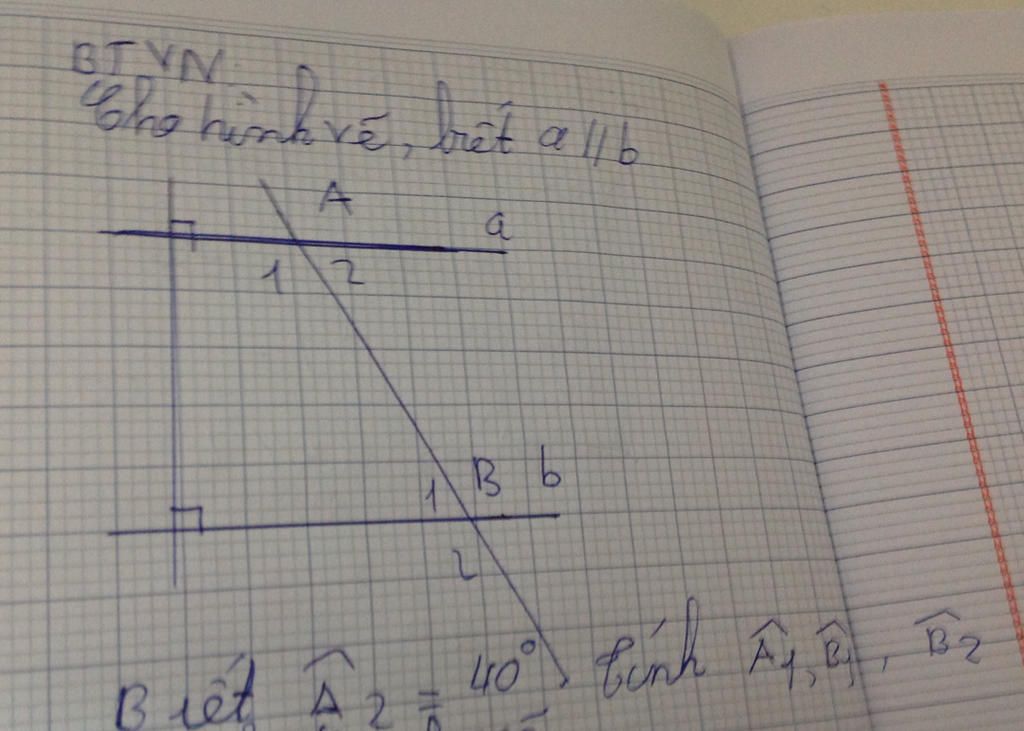 BTVN
Cho hình vẽ, biết a // b
A
a
1 2
1 B b
2
Biết Â2 = 40° tính Â1, B̂1, B̂2